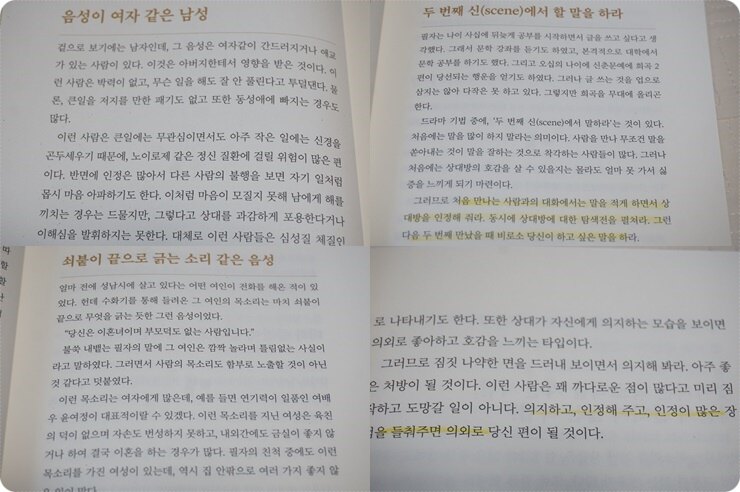 음성이 여자 같은 남성
겉으로 보기에는 남자인데, 그 음성은 여자같이 간드러지거나 애교
가 있는 사람이 있다. 이것은 아버지한테서 영향을 받은 것이다. 이
런 사람은 박력이 없고, 무슨 일을 해도 잘 안 풀린다고 투덜댄다. 물
론, 큰일을 저지를 만한 패기도 없고 또한 동성애에 빠지는 경우도
많다.
이런 사람은 큰일에는 무관심이면서도 아주 작은 일에는 신경을
곤두세우기 때문에, 노이로제 같은 정신 질환에 걸릴 위험이 많은 편
이다. 반면에 인정은 많아서 다른 사람의 불행을 보면 자기 일처럼
몹시 마음 아파하기도 한다. 이처럼 마음이 모질지 못해 남에게 해를
끼치는 경우는 드물지만, 그렇다고 상대를 과감하게 포용한다거나
이해심을 발휘하지는 못한다. 대체로 이런 사람들은 심성질 체질인
두 번째 신(scene)에서 할 말을 하라
필자는 나이 사십에 뒤늦게 공부를 시작하면서 글을 쓰고 싶다고 생
각했다. 그래서 문학 강좌를 듣기도 하였고, 본격적으로 대학에서
문학 공부를 하기도 했다. 그리고 오십의 나이에 신춘문예에 희곡 2
편이 당선되는 행운을 얻기도 하였다. 그러나 글 쓰는 것을 업으로
삼지는 않아 다작은 못 하고 있다. 그렇지만 희곡을 무대에 올리곤
한다.
드라마 기법 중에, '두 번째 신(scene)에서 말하라'는 것이 있다.
처음에는 말을 많이 하지 말라는 의미이다. 사람을 만나 무조건 말을
쏟아내는 것이 말을 잘하는 것으로 착각하는 사람들이 많다. 그러나
처음에는 상대방의 호감을 살 수 있을지는 몰라도 얼마 못 가서 싫
증을 느끼게 되기 마련이다.
그러므로 처음 만나는 사람과의 대화에서는 말을 적게 하면서 상
대방을 인정해 줘라. 동시에 상대방에 대한 탐색전을 펼쳐라. 그런
다음 두 번째 만났을 때 비로소 당신이 하고 싶은 말을 하라.
쇠붙이 끝으로 긁는 소리 같은 음성
얼마 전에 성남시에 살고 있다는 어떤 여인이 전화를 해온 적이 있
었다. 헌데 수화기를 통해 들려온 그 여인의 목소리는 마치 쇠붙이
끝으로 무엇을 긁는 듯한 그런 음성이었다.
"당신은 이혼녀이며 부모덕도 없는 사람입니다."
불쑥 내뱉는 필자의 말에 그 여인은 깜짝 놀라며 틀림없는 사실이
라고 말하였다. 그러면서 사람의 목소리도 함부로 노출할 것이 아닌
것 같다고 덧붙였다.
이런 목소리는 여자에게 많은데, 예를 들면 연기력이 일품인 여배
우 윤여정이 대표적이랄 수 있겠다. 이런 목소리를 지닌 여성은 육친
의 덕이 없으며 자손도 번성하지 못하고, 내외간에도 금실이 좋지 않
거나 하여 결국 이혼을 하는 경우가 많다. 필자의 친척 중에도 이런
목소리를 가진 여성이 있는데, 역시 집 안팎으로 여러 가지 좋지 않
로 나타내기도 한다. 또한 상대가 자신에게 의지하는 모습을 보이면
의외로 좋아하고 호감을 느끼는 타입이다.
그러므로 짐짓 나약한 면을 드러내 보이면서 의지해 봐라. 아주 좋
은 처방이 될 것이다. 이런 사람은 꽤 까다로운 점이 많다고 미리 짐
작하고 도망갈 일이 아니다. 의지하고, 인정해 주고, 인정이 많은 장
점을 들춰주면 의외로 당신 편이 될 것이다.